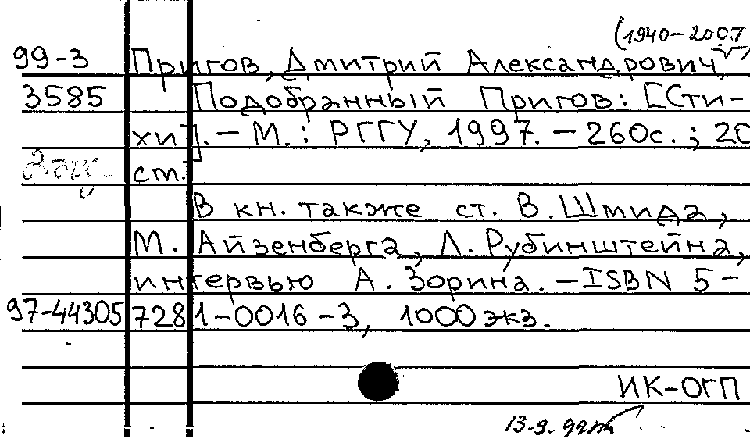 (1940-2007)
99-3 Пригов, Дмитрий Александрович
3585 Подобранный Пригов: [Сти-
хи]. - М.: РГГУ, 1997. - 260с.; 20
ст.
В кн. также ст. В. Шмида,
М. Айзенберга, Л. Рубинштейна,
интервью А. Зорина. - ISBN 5-
97-44305 7281-0016-3, 1000 экз.
ИК-ОГП